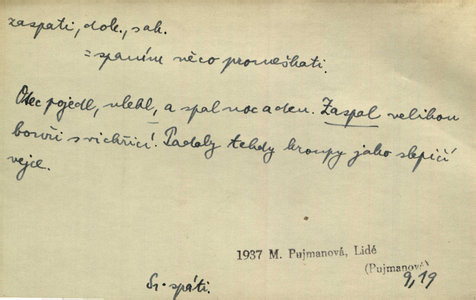 zaspati, dok., sah.
= spaním něco promeškati.
Otec pojedl, ulehl, a spal noc a den. Zaspal velikou
bouři s vichřicí. Padaly tehdy kroupy jako slepičí
vejce.
1937 M. Pujmanová, Lidé
(Pujmanová)
9,19
Sr. spáti.